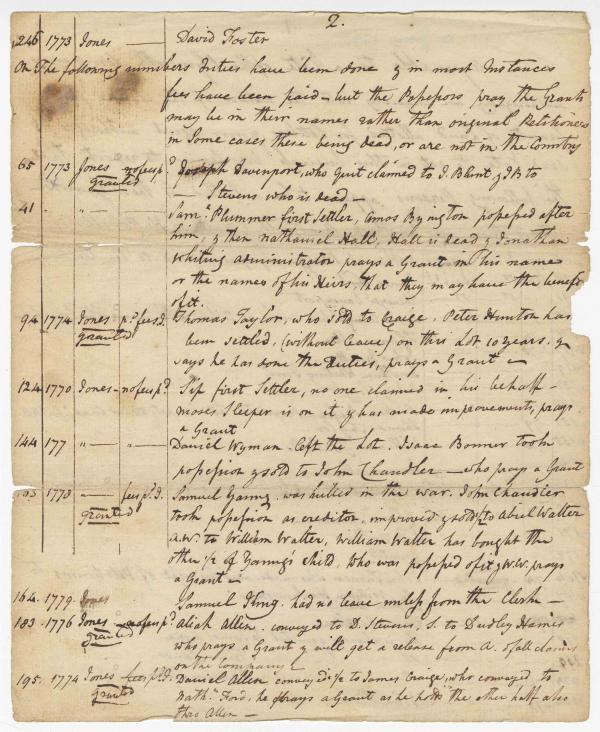 2.
246 1773 Jones — David Foster
On The following numbers Duties have been done & in most Instances
fees have been paid – but the Possessors pray the Grants
may be in their names rather than original Petitioners
in Some cases these being dead, or are not in the Country
65 1773 Jones no fees p.d Joseph Davenport, who quit claimed to J. Blunt & J B to
granted Stevens who is dead –
41 " — Sam.l Plummer first Settler, Amos Byington possessed after
him, & then Nathaniel Hall, Hall is dead & Jonathan
Whiting administrator prays a Grant in his name
or the names of his Heirs that they may have the benefit
of it.
94 1774 Jones p.d fees J. Thomas Taylor, who sold to Craige, Peter Hunton has
granted been Settled, (without leave) on this Lot 10 years. &
says he has done the duties, prays a Grant –
124 1770 Jones – no fees p.d first Settler, no one claimed in his behalf –
Moses Sleeper is on it & has made improvements, prays
a Grant
144 177 " — " — Daniel Wyman left the Lot. Isaac Bonner took
possession & sold to John Chandler – who prays a Grant
1773 — fees p.d J. Samuel Young was killed in the war. John Chandler
granted took possession as creditor, improved & sold 1/2 to Abiel Walter
A.W. to William Walter, William Walter has bought the
other 1/2 of Young's Child, who was possessed of it & W.W. prays
a Grant –
164. 1779. Jones Samuel King had no leave unless from the Clerk –
183. 1776 Jones no fees p.d Aliah Allen. conveyed to D. Stevens, S. to Dudley Haines
granted who prays a Grant & will get a release from A. of all claims
on the Company
195. 1774 Jones fees p.d J. Daniel Allen conveyed 1/2 to James Craige, who conveyed to
granted Nath.l Ford, he prays a Grant as he holds the other half also
thro Allen –